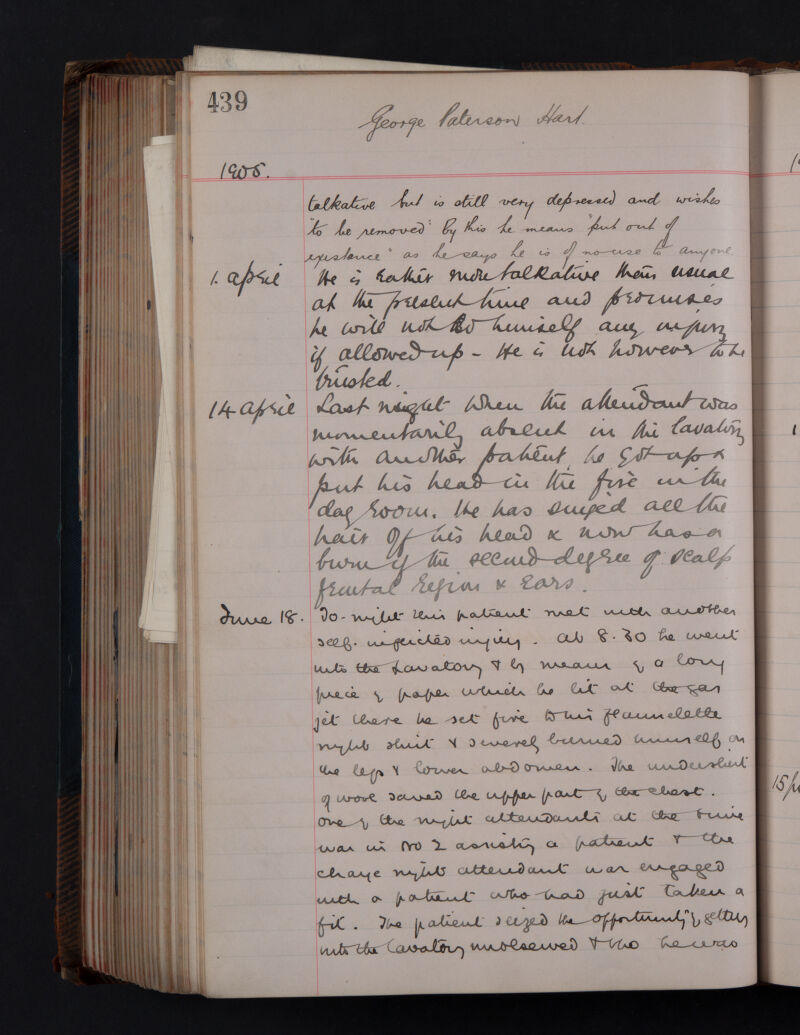 439
George Paterson Hart.
1905.
talkative but is still very depressed and wishes
"to be removed" by this he means "put out of
existance" as he says he is of no use to anyone.
1. april He is rather more talkative than usual
at the present time and promises
he will not do himself any injury
if allowed up - He is not however to be
trusted.
14 april Last night when the attendant was
momentarily absent in the lavatory
with another patient, he got up &
put his head in the fire in the
day room. He has singed all the
hair of his head & now has a
burn of the second degree of scalp
frontal region & ears.
June 18. To-night this patient met with another
self-inflicted injury. at 8.30 he went
into the Lavatory & by means of a long
piece of paper which he lit at the gas
jet there he set fire to his flannelette
night shirt & severely burned himself on
the legs & lower abdomen. The undershirt
of wool saved the upper part of the chest.
One of the night attendants at the time
was in No 2 assisting a patient & the
charge night attendant was engaged
with a patient who had just taken a
fit. The patient seized the opportunity of getting
into the Lavatory unobserved & tho he was
15/